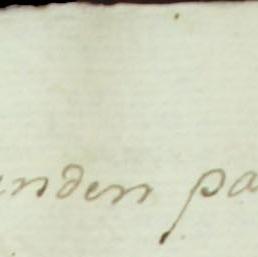 nden pa